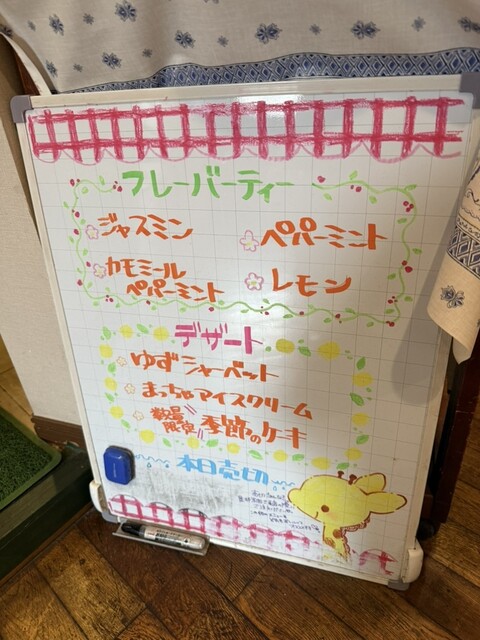 フレーバーティー
ジャスミン
ペパーミント
カモミール
ペパーミント
レモン
デザート
ゆずシャーベット
まっちゃアイスクリーム
数量
限定
季節のケーキ
本日売切